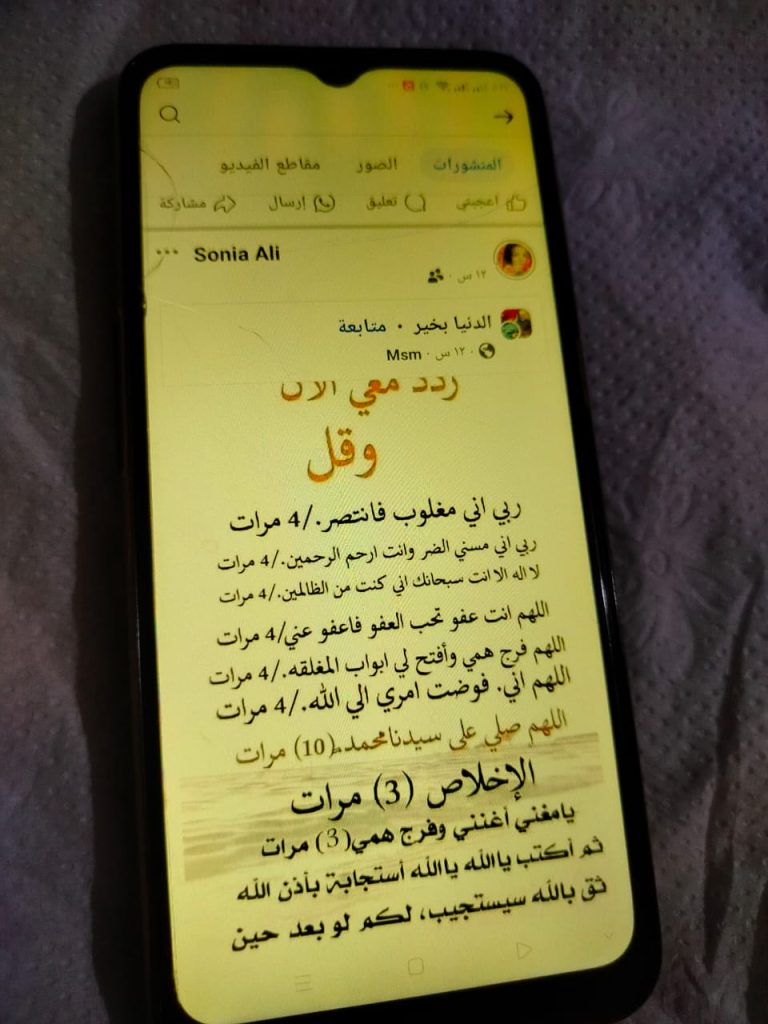 المنشورات الصور مقاطع الفيديو
اعجبني تعليق إرسال مشاركة
Sonia Ali
١٢ س ·
الدنيا بخير · متابعة
Msm · ١٢ س ·
ردد معي الان
وقل
ربي اني مغلوب فانتصر./4 مرات
ربي اني مسني الضر وانت ارحم الرحمين./4 مرات
لا اله الا انت سبحانك اني كنت من الظالمين./4 مرات
اللهم انت عفو تحب العفو فاعفو عني/4 مرات
اللهم فرج همي وأفتح لي ابواب المغلقه./4 مرات
اللهم اني. فوضت امري الي الله./4 مرات
اللهم صلي على سيدنامحمد.(10) مرات
الإخلاص (3) مرات
يامغني أغنني وفرج همي(3) مرات
ثم أكتب ياالله ياالله أستجابة بأذن الله
ثق بالله سيستجيب، لكم لو بعد حين